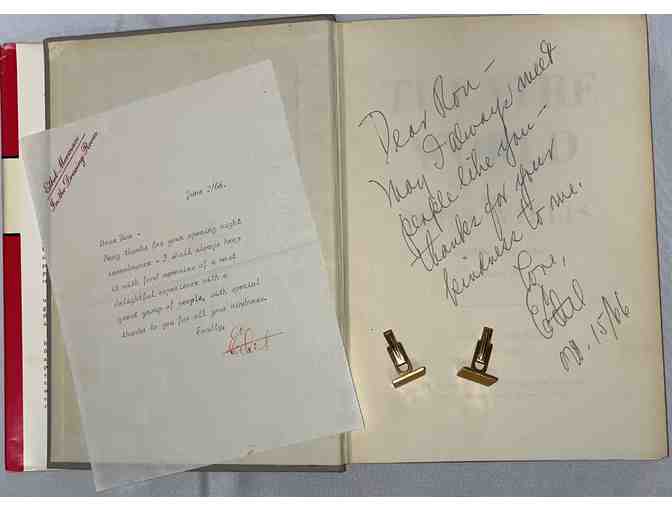 Ethel Merman
In the Dressing Room
June 2/66.
Dear Ron -
Many thanks for your opening night
remembrance - I shall always keep
it with fond memories of a most
delightful experience with a
great group of people, with special
thanks to you for all your kindness.
Fondly,
Ethel
Dear Ron -
May I always meet
people like you -
thanks for your
kindness to me.
Love,
Ethel
15/66